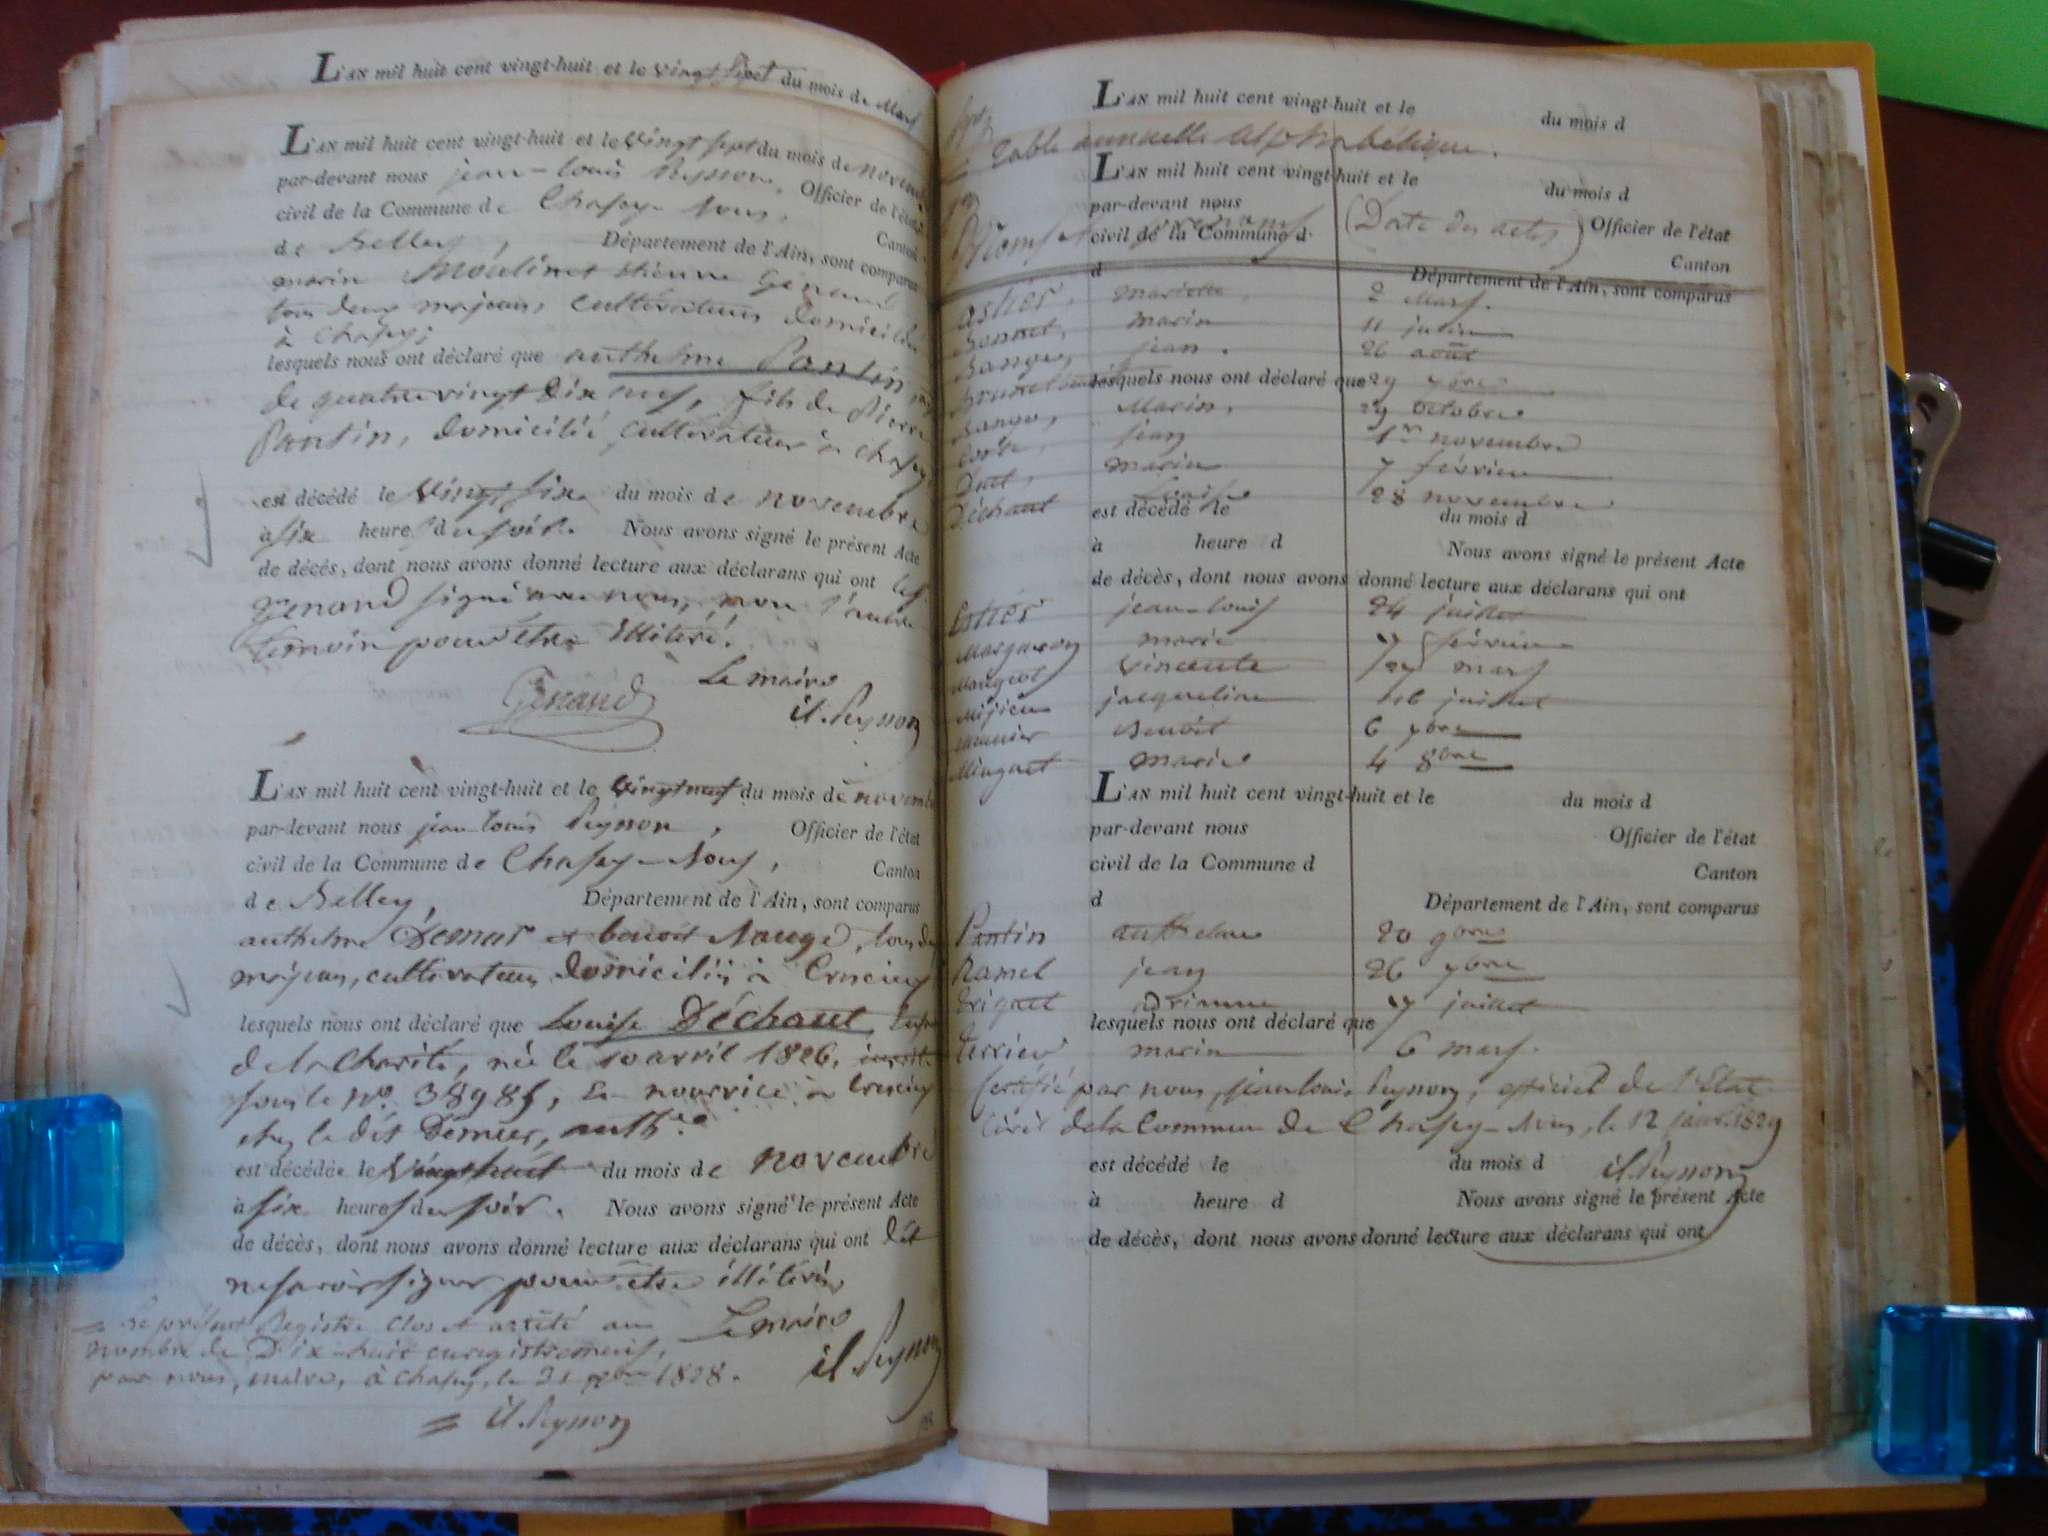 L'AN mil huit cent vingt-huit et le vingt sept du mois de Mars
L'AN mil huit cent vingt-huit et le vingt sept du mois de novembre
par-devant nous jean-louis Peysson, Officier de l'état
civil de la Commune de Chasey-Nous, Canton
de Belley, Département de l'Ain, sont comparus
marin Moulinet étienne Genand
tous deux majeurs, cultivateurs domiciliés
à Chasey;
lesquels nous ont déclaré que anthelme Pantin
de quatre vingt dix neuf, fils de Pierre
Pantin, domicilié, cultivateur à Chasey
est décédé le vingt six du mois de novembre
à six heure du soir. Nous avons signé le présent Acte
de décès, dont nous avons donné lecture aux déclarans qui ont
genand signé avec nous, non l'autre
témoin pour être illitéré.
Genand Le maire
jl. Peysson
L'AN mil huit cent vingt-huit et le vingt neuf du mois de novembre
par-devant nous jean louis Peysson, Officier de l'état
civil de la Commune de Chasey-Nous, Canton
de Belley, Département de l'Ain, sont comparus
anthelme Demur et benoit Nouge, tous deux
majeurs, cultivateurs domiciliés à Crescieu
lesquels nous ont déclaré que Louise Déchaut,
de la Charité, née le 10 avril 1826, inscrite
sous le No. 38985, en nourrice à Crescieu
chez le dit Demeur, anth.e
est décédée le vingt huit du mois de novembre
à six heures du soir. Nous avons signé le présent Acte
de décès, dont nous avons donné lecture aux déclarans qui ont dit
ne savoir signer pour être illitérés
Le présent Registre clos et arrêté au
nombre de Dix-huit enregistremens,
par nous, maire, à Chasey, le 31 1828.
Le maire
jl. Peysson
jl. Peysson
L'AN mil huit cent vingt-huit et le du mois d
Table annuelle Alphabétique.
L'AN mil huit cent vingt-huit et le du mois d
par-devant nous Officier de l'état
Noms et prénoms (Date des actes)
civil de la Commune d Canton
d Département de l'Ain, sont comparus
astier, mariette, 2 Mars.
Bonnet, marin 11 juin
jean. 26 août
lesquels nous ont déclaré que 29 7bre
Marin, 29 octobre
jean 1er novembre
marin 7 février
Déchaut Louise 28 novembre
est décédé le du mois d
à heure d Nous avons signé le présent Acte
de décès, dont nous avons donné lecture aux déclarans qui ont
Estier jean-louis 24 juillet
marie 7 février
Mangeot Vincente 27 mars
Mijieu jacqueline 16 juillet
Benoit 6 7bre
Minguet marie 4 8bre
L'AN mil huit cent vingt-huit et le du mois d
par-devant nous Officier de l'état
civil de la Commune d Canton
d Département de l'Ain, sont comparus
Pantin anthelme 20 9bre
Ramel jean 26 7bre
Adrienne 7 juillet
lesquels nous ont déclaré que
Terrier marin 6 mars.
Certifié par nous, jean louis Peysson, officier de l'Etat
Civil de la Commune de Chasey-Nous, le 12 janv. 1829
est décédé le du mois d jl. Peysson
à heure d Nous avons signé le présent Acte
de décès, dont nous avons donné lecture aux déclarans qui ont